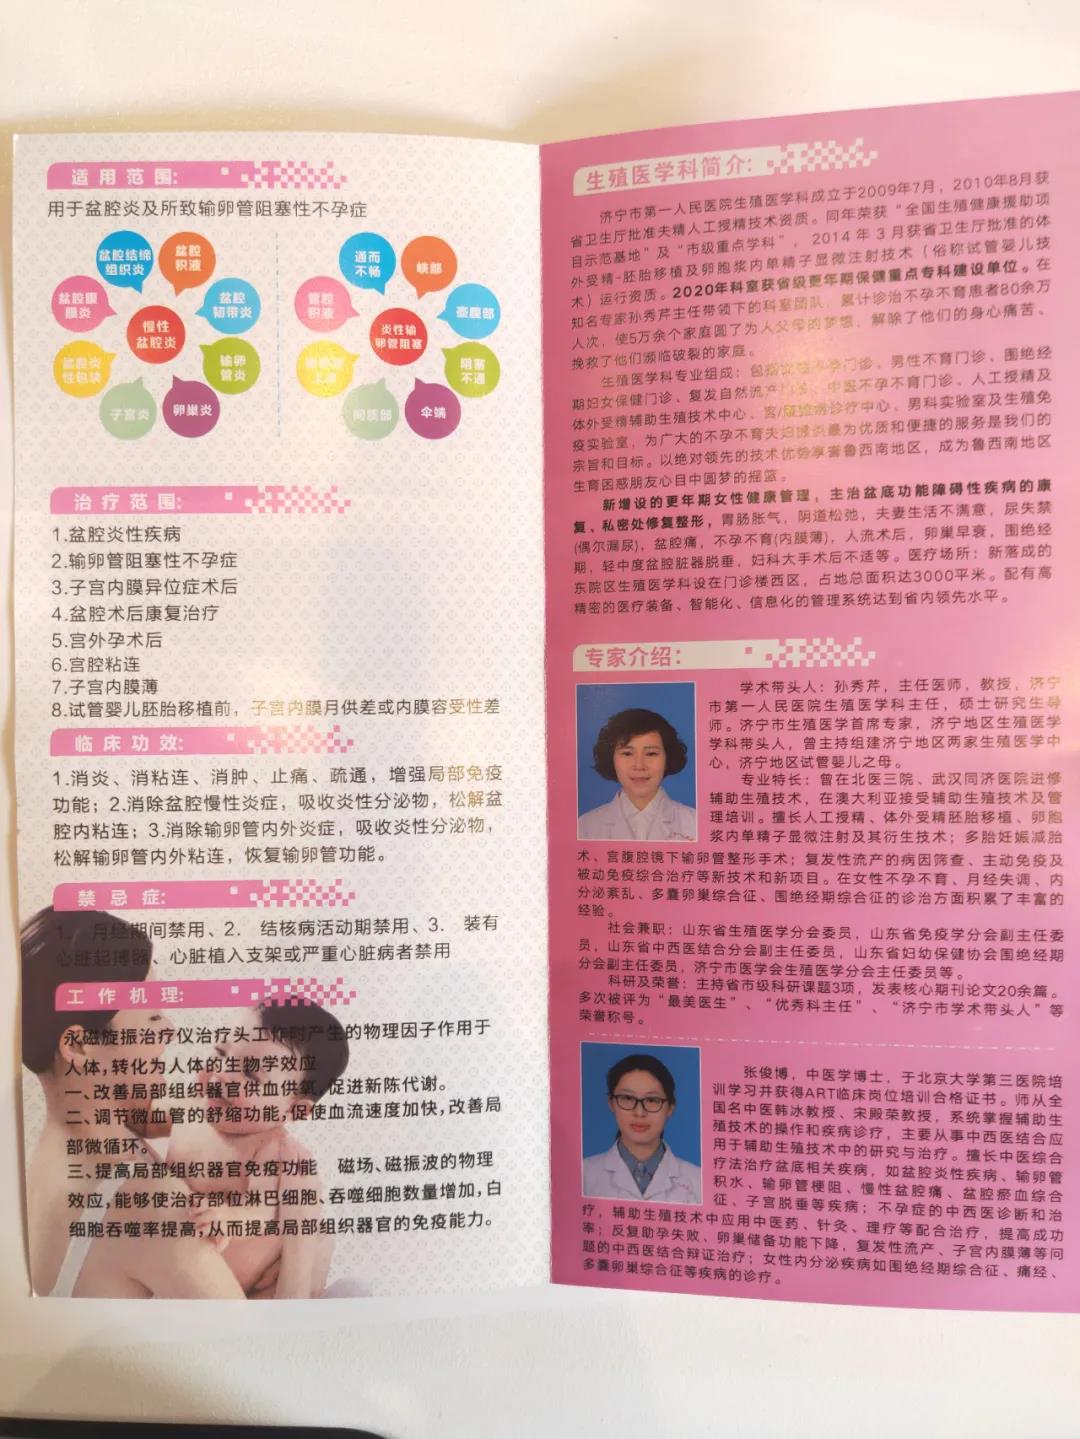 适用范围:
用于盆腔炎及所致输卵管阻塞性不孕症
盆腔结缔
组织炎
盆腔
积液
盆腔腹
膜炎
盆腔
韧带炎
慢性
盆腔炎
盆腔炎
性包块
输卵
管炎
子宫炎
卵巢炎
通而
不畅
峡部
管腔
积液
壶腹部
炎性输
卵管阻塞
阻塞
不通
间质部
伞端
治疗范围:
1.盆腔炎性疾病
2.输卵管阻塞性不孕症
3.子宫内膜异位症术后
4.盆腔术后康复治疗
5.宫外孕术后
6.宫腔粘连
7.子宫内膜薄
8.试管婴儿胚胎移植前，子宫内膜月供差或内膜容受性差
临床功效:
1.消炎、消粘连、消肿、止痛、疏通，增强局部免疫
功能；2.消除盆腔慢性炎症，吸收炎性分泌物，松解盆
腔内粘连；3.消除输卵管内外炎症，吸收炎性分泌物，
松解输卵管内外粘连，恢复输卵管功能。
禁忌症:
1. 月经期间禁用、2. 结核病活动期禁用、3. 装有
心脏起搏器、心脏植入支架或严重心脏病者禁用
工作机理:
永磁旋振治疗仪治疗头工作时产生的物理因子作用于
人体,转化为人体的生物学效应
一、改善局部组织器官供血供氧,促进新陈代谢。
二、调节微血管的舒缩功能,促使血流速度加快,改善局
部微循环。
三、提高局部组织器官免疫功能 磁场、磁振波的物理
效应,能够使治疗部位淋巴细胞、吞噬细胞数量增加,白
细胞吞噬率提高,从而提高局部组织器官的免疫能力。
生殖医学科简介:
济宁市第一人民医院生殖医学科成立于2009年7月，2010年8月获
省卫生厅批准夫精人工授精技术资质。同年荣获“全国生殖健康援助项
目示范基地”及“市级重点学科”，2014年3月获省卫生厅批准的体
外受精-胚胎移植及卵胞浆内单精子显微注射技术（俗称试管婴儿技
术）运行资质。2020年科室获省级更年期保健重点专科建设单位。在
知名专家孙秀芹主任带领下的科室团队，累计诊治不孕不育患者80余万
人次，使5万余个家庭圆了为人父母的梦想，解除了他们的身心痛苦、
挽救了他们濒临破裂的家庭。
生殖医学科专业组成：包括女性不孕门诊、男性不育门诊、围绝经
期妇女保健门诊、复发自然流产门诊、中医不孕不育门诊、人工授精及
体外受精辅助生殖技术中心、宫/腹腔镜诊疗中心、男科实验室及生殖免
疫实验室，为广大的不孕不育夫妇提供最为优质和便捷的服务是我们的
宗旨和目标。以绝对领先的技术优势享誉鲁西南地区，成为鲁西南地区
生育困惑朋友心目中圆梦的摇篮。
新增设的更年期女性健康管理，主治盆底功能障碍性疾病的康
复、私密处修复整形，胃肠胀气，阴道松弛，夫妻生活不满意，尿失禁
(偶尔漏尿)，盆腔痛，不孕不育(内膜薄)，人流术后，卵巢早衰，围绝经
期，轻中度盆腔脏器脱垂，妇科大手术后不适等。医疗场所：新落成的
东院区生殖医学科设在门诊楼西区，占地总面积达3000平米。配有高
精密的医疗装备、智能化、信息化的管理系统达到省内领先水平。
专家介绍:
学术带头人：孙秀芹，主任医师，教授，济宁
市第一人民医院生殖医学科主任，硕士研究生导
师。济宁市生殖医学首席专家，济宁地区生殖医学
学科带头人，曾主持组建济宁地区两家生殖医学中
心，济宁地区试管婴儿之母。
专业特长：曾在北医三院、武汉同济医院进修
辅助生殖技术，在澳大利亚接受辅助生殖技术及管
理培训。擅长人工授精、体外受精胚胎移植、卵胞
浆内单精子显微注射及其衍生技术；多胎妊娠减胎
术、宫腹腔镜下输卵管整形手术；复发性流产的病因筛查、主动免疫及
被动免疫综合治疗等新技术和新项目。在女性不孕不育、月经失调、内
分泌紊乱、多囊卵巢综合征、围绝经期综合征的诊治方面积累了丰富的
经验。
社会兼职：山东省生殖医学分会委员，山东省免疫学分会副主任委
员，山东省中西医结合分会副主任委员，山东省妇幼保健协会围绝经期
分会副主任委员，济宁市医学会生殖医学分会主任委员等。
科研及荣誉：主持省市级科研课题3项，发表核心期刊论文20余篇。
多次被评为“最美医生”、“优秀科主任”、“济宁市学术带头人”等
荣誉称号。
张俊博，中医学博士，于北京大学第三医院培
训学习并获得ART临床岗位培训合格证书。师从全
国名中医韩冰教授、宋殿荣教授，系统掌握辅助生
殖技术的操作和疾病诊疗，主要从事中西医结合应
用于辅助生殖技术中的研究与治疗。擅长中医综合
疗法治疗盆底相关疾病，如盆腔炎性疾病、输卵管
积水、输卵管梗阻、慢性盆腔痛、盆腔瘀血综合
征、子宫脱垂等疾病；不孕症的中西医诊断和治
疗，辅助生殖技术中应用中医药、针灸、理疗等配合治疗，提高成功
率；反复助孕失败、卵巢储备功能下降，复发性流产、子宫内膜薄等问
题的中西医结合辩证治疗；女性内分泌疾病如围绝经期综合征、痛经、
多囊卵巢综合征等疾病的诊疗。